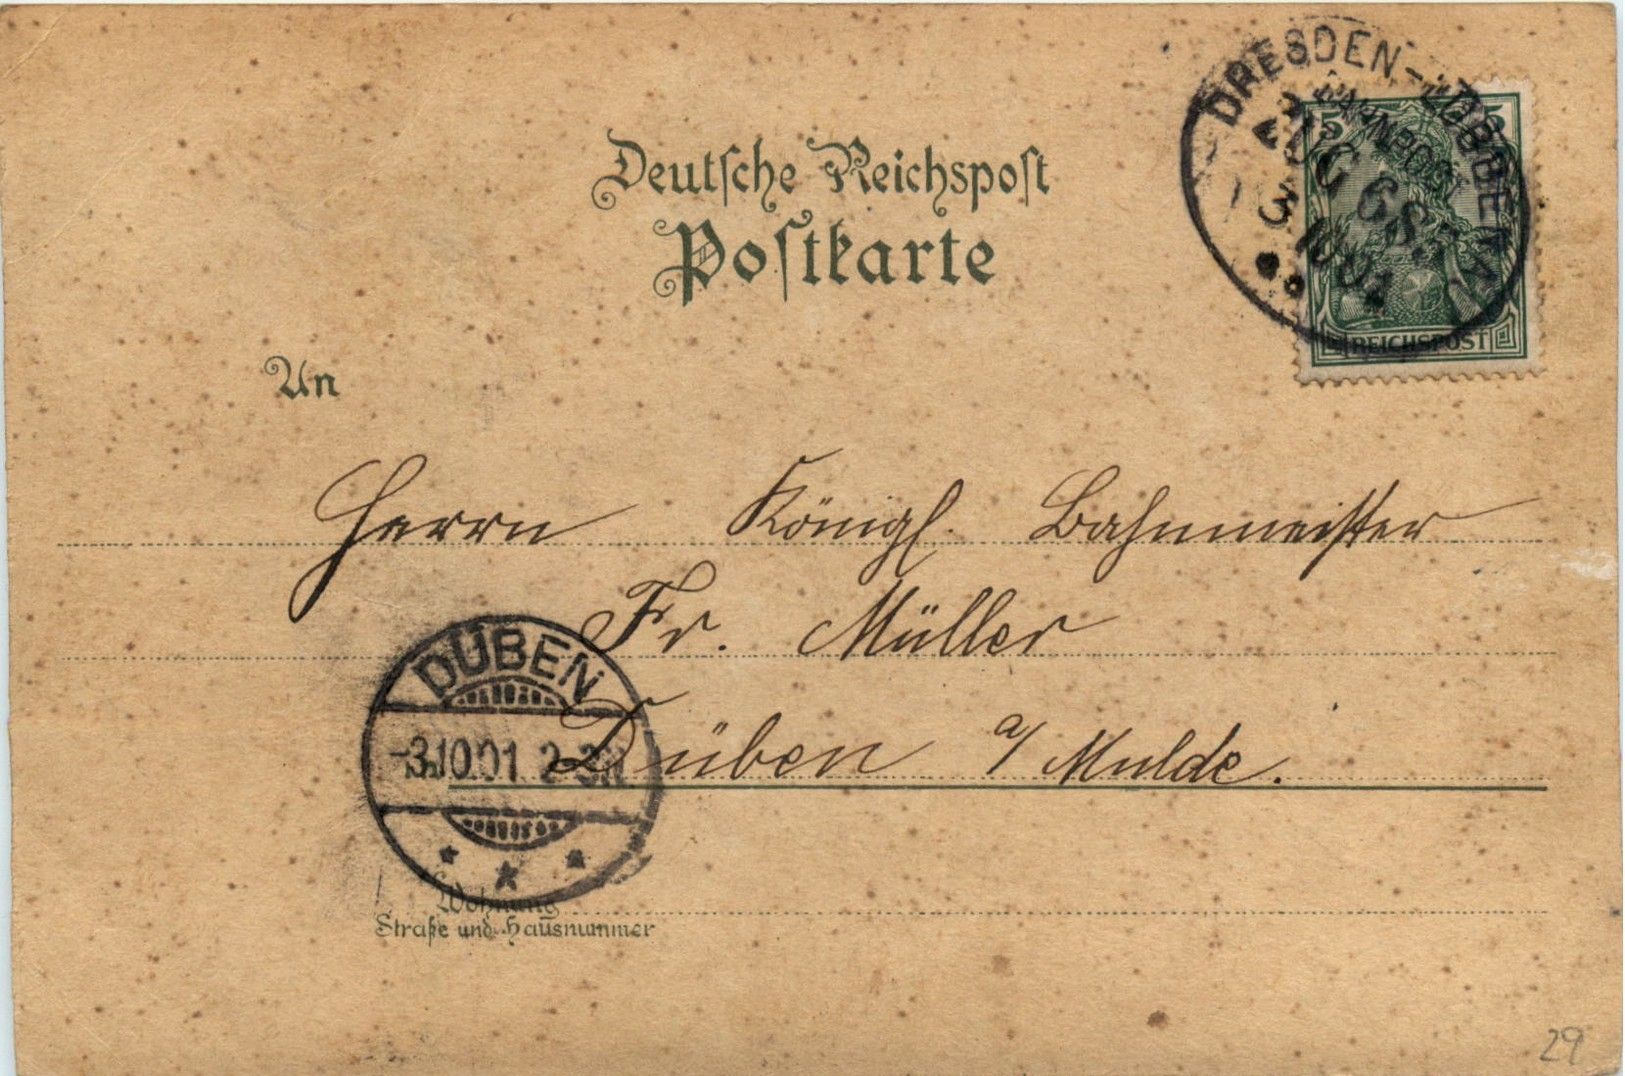 Deutsche Reichspost
Postkarte
DRESDEN - LÜBBEN
BAHNPOST
5 5
REICHSPOST
An
Herrn Königl. Bahnmeister
Fr. Müller
Düben a/Mulde.
DÜBEN
-3.10.01 2-3N
Wohnung
Straße und Hausnummer
29